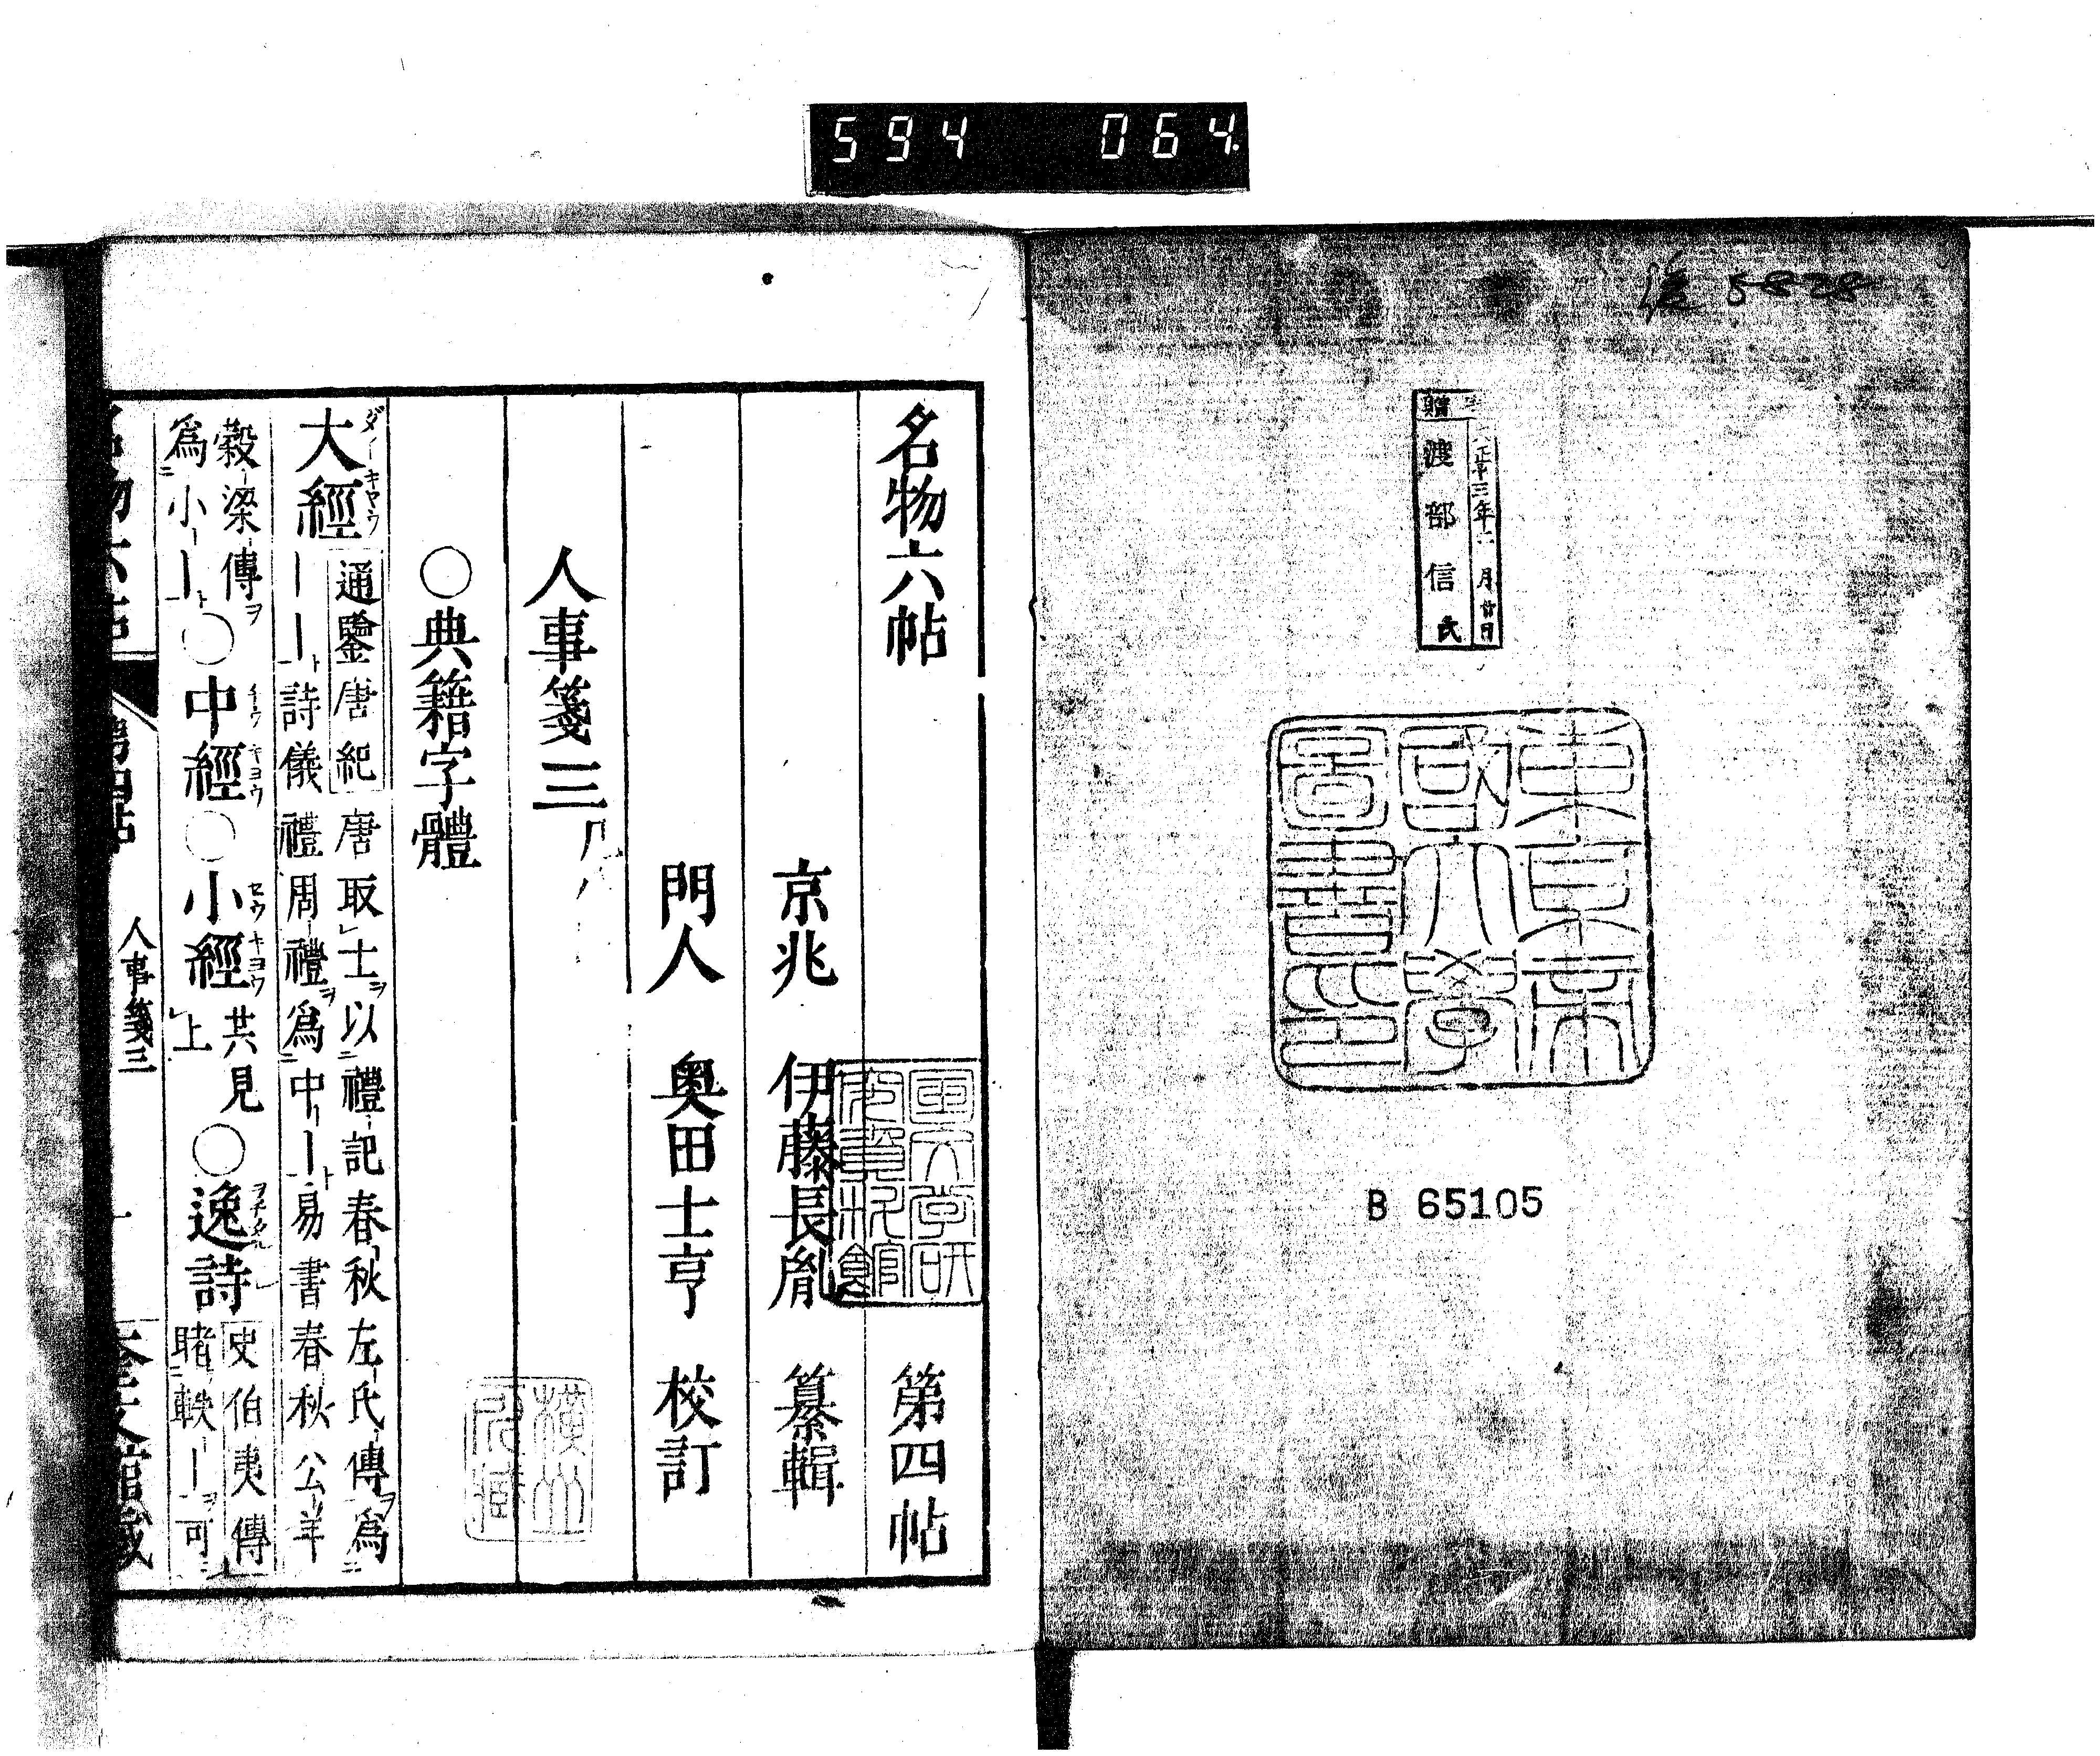 594 064
5828
贈
渡部信氏
大正十三年二月廿日
東京帝
國大學
圖書印
B 65105
名物六帖 第四帖
京兆 伊藤長胤 纂輯
門人 奥田士亨 校訂
人事箋三
○典籍字體
大經 ダイキヤウ
通鑒唐紀 唐取士ヲ以禮記春秋左氏傳ヲ爲
｜｜ト詩儀禮周禮ヲ爲中｜ト易書春秋公羊
穀梁傳ヲ
爲小｜ト
○中經 チウキヨウ ○小經 セウキヨウ
共見
上
○逸詩
史伯夷傳
睹軼｜ヲ可
名物六帖 第四帖 人事箋三 一 奎文館藏